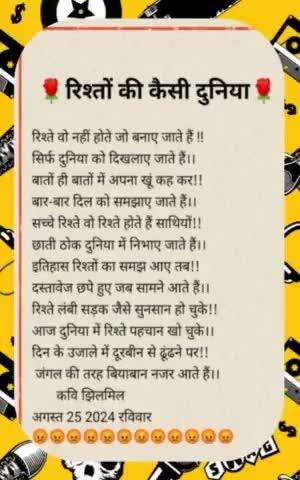 🌹रिश्तों की कैसी दुनिया🌹
रिश्ते वो नहीं होते जो बनाए जाते हैं !!
सिर्फ दुनिया को दिखलाए जाते हैं।।
बातों ही बातों में अपना खूं कह कर!!
बार-बार दिल को समझाए जाते हैं।।
सच्चे रिश्ते वो रिश्ते होते हैं साथियों!!
छाती ठोक दुनिया में निभाए जाते हैं।।
इतिहास रिश्तों का समझ आए तब!!
दस्तावेज छपे हुए जब सामने आते हैं।।
रिश्ते लंबी सड़क जैसे सुनसान हो चुके!!
आज दुनिया में रिश्ते पहचान खो चुके।।
दिन के उजाले में दूरबीन से ढूंढने पर!!
जंगल की तरह बियाबान नजर आते हैं।।
कवि झिलमिल
अगस्त 25 2024 रविवार
😡😡😡😡😡😡😡😡😡😡😡😡